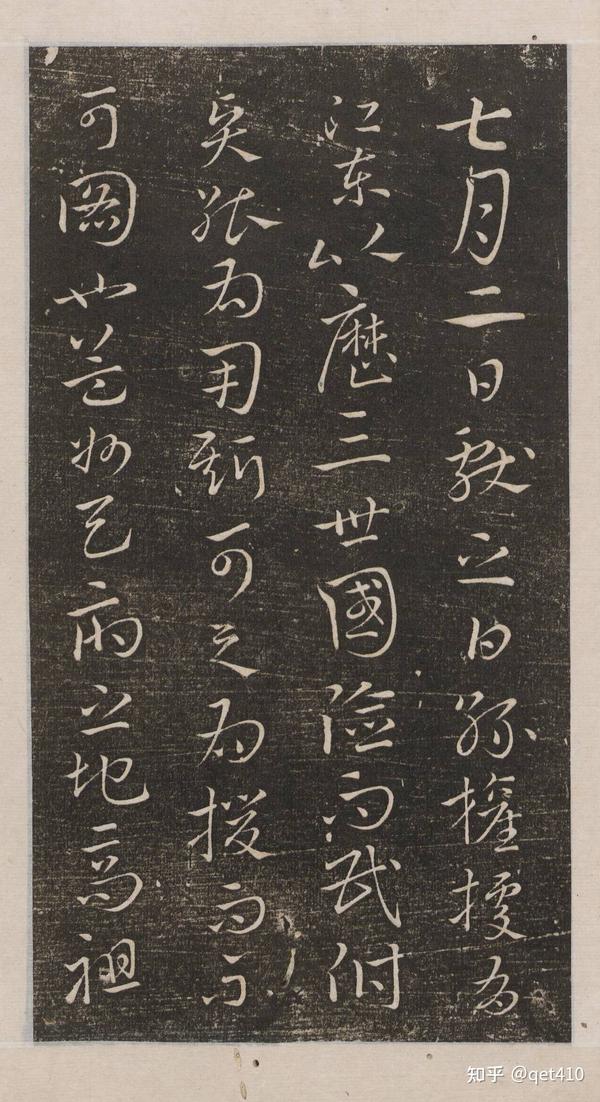 七月二日獻之白孫權據
江東以歷三世國險而民附
賢能為用斯可為援而不
可圖也州之地高祖
知乎 @qet410